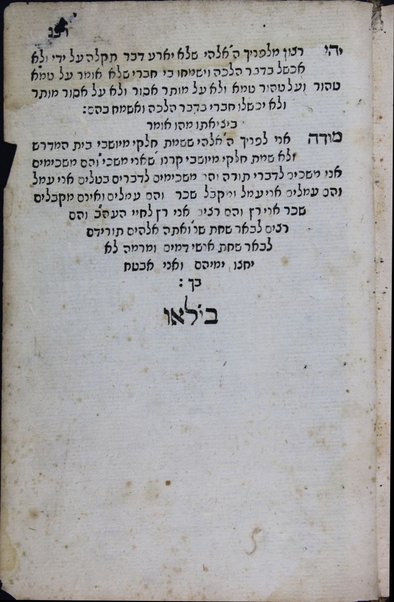 יהי רצון מלפניך ה׳ אלהי שלא יארע דבר תקלה על ידי ולא
אכשל בדבר הלכה וישמחו בי חברי שלא אומר על טמא
טהור ועל טהור טמא ולא על מותר אסור ולא על אסור מותר
ולא יכשלו חברי בדבר הלכה ואשמח בהם :
ביציאתו מהו אומר
מודה אני לפניך ה׳ אלהי ששמת חלקי מיושבי בית המדרש
ולא שמת חלקי מיושבי קרנו׳ שאני משכי׳ והם משכימים
אני משכים לדברי תורה והם משכימים לדברים בטלים אני עמל
והם עמלים אני עמל ומקבל שכר והם עמלים ואינם מקבלים
שכר אני רץ והם רצים אני רץ לחיי העה״ב והם
רצים לבאר שחת שנ׳ ואתה אלהים תורידם
לבאר שחת אנשי דמים ומרמה לא
יחצו ימיהם ואני אבטח
בך :
בילאו